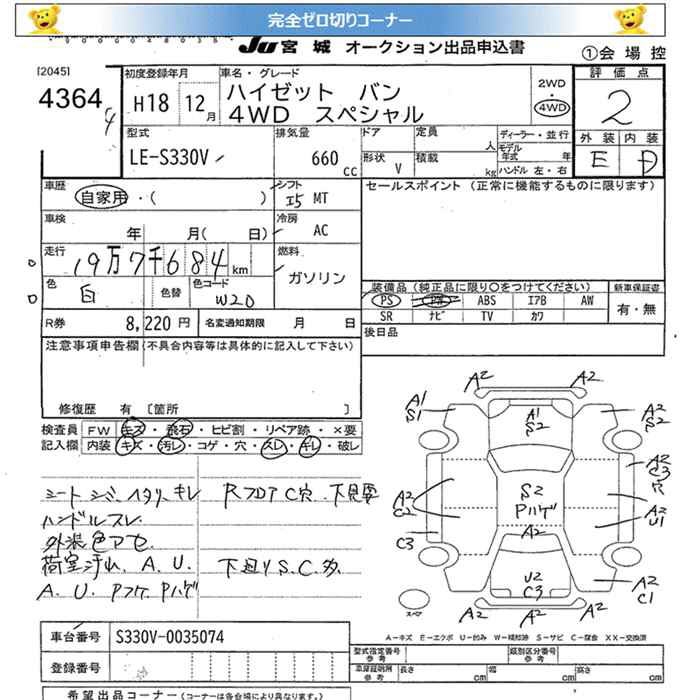 完全ゼロ切りコーナー
JU 宮城 オークション出品申込書
①会場控
[2045]
4364
4
初度登録年月
H18 12月
車名・グレード
ハイゼット バン
4WD スペシャル
2WD
・
4WD
評価点
2
外装 内装
E D
型式
LE-S330V
排気量
660 cc
ドア
定員
人
形状 V
積載
kg
ディーラー・並行
モデル年式 年
ハンドル 左・右
車歴
自家用・( )
シフト
I5 MT
セールスポイント (正常に機能するものに限ります)
車検
年 月( 日)
冷房
AC
走行
19万7千684km
燃料
ガソリン
色
白
色替
色コード
W20
装備品(純正品に限り○をつけてください)
新車保証書
PS PW ABS エアB AW
有・無
SR ナビ TV カワ
R券 8,220円
名変通知期限 月 日
後日品
注意事項申告欄(不具合内容等は具体的に記入して下さい)
修復歴 有 [箇所 ]
検査員 FW キズ・飛石・ヒビ割・リペア跡・×要
記入欄 内装 キズ・汚レ・コゲ・穴・スレ・キレ・破レ
シート シミ ヘタリ キレ
ハンドルスレ
外装色アセ
荷室汚れ、A、U、
A、U、Pフケ Pハゲ
RフロアC穴 下見要
下廻りS、C、多
A2 A2
A1
S1
A1
S2
A2
S2
A2
C3
穴
A2
C2
S2
Pハゲ
A2
U1
C3
A2
U2
C3
A2
C1
スペア
A2 A2
A-キズ E-エクボ U-凹み W-補修跡 S-サビ C-腐食 XX-交換済
車台番号 S330V-0035074
型式指定番号
参考
類別区分番号
参考
登録番号
車庫証明用
参考
長さ cm
幅 cm
高さ cm
希望出品コーナー(コーナーは各会場により異なります。)